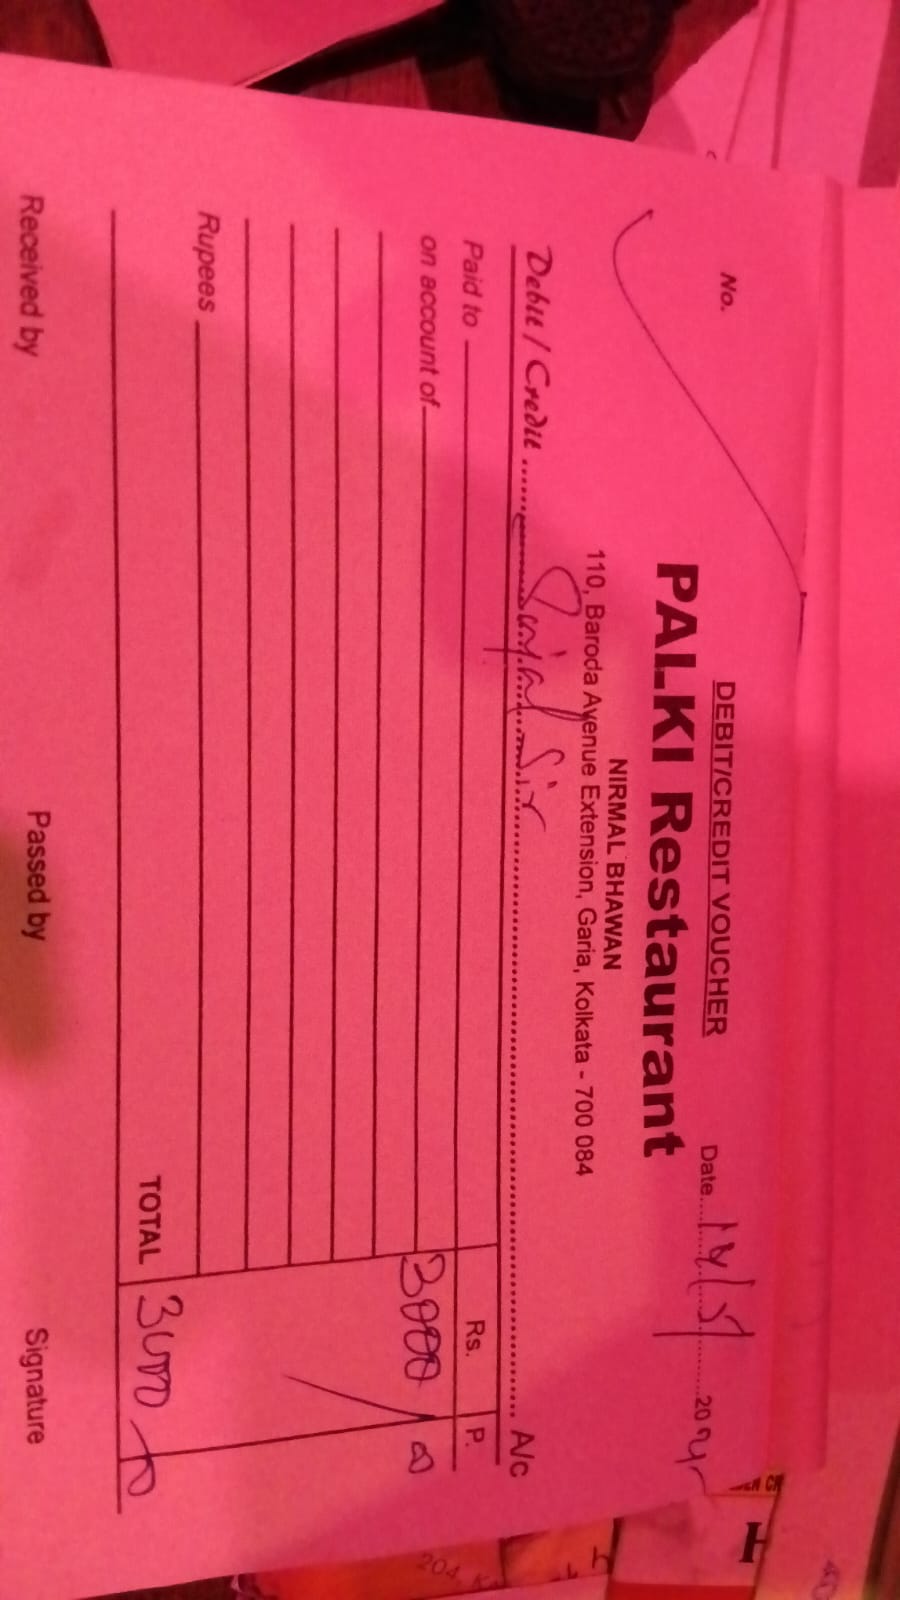 DEBIT/CREDIT VOUCHER
No. Date 20
PALKI Restaurant
NIRMAL BHAWAN
110, Baroda Avenue Extension, Garia, Kolkata - 700 084
Debit / Credit Sir A/c
Paid to Rs. P.
on account of 3000
Rupees
TOTAL 3000
Received by Passed by Signature
204,